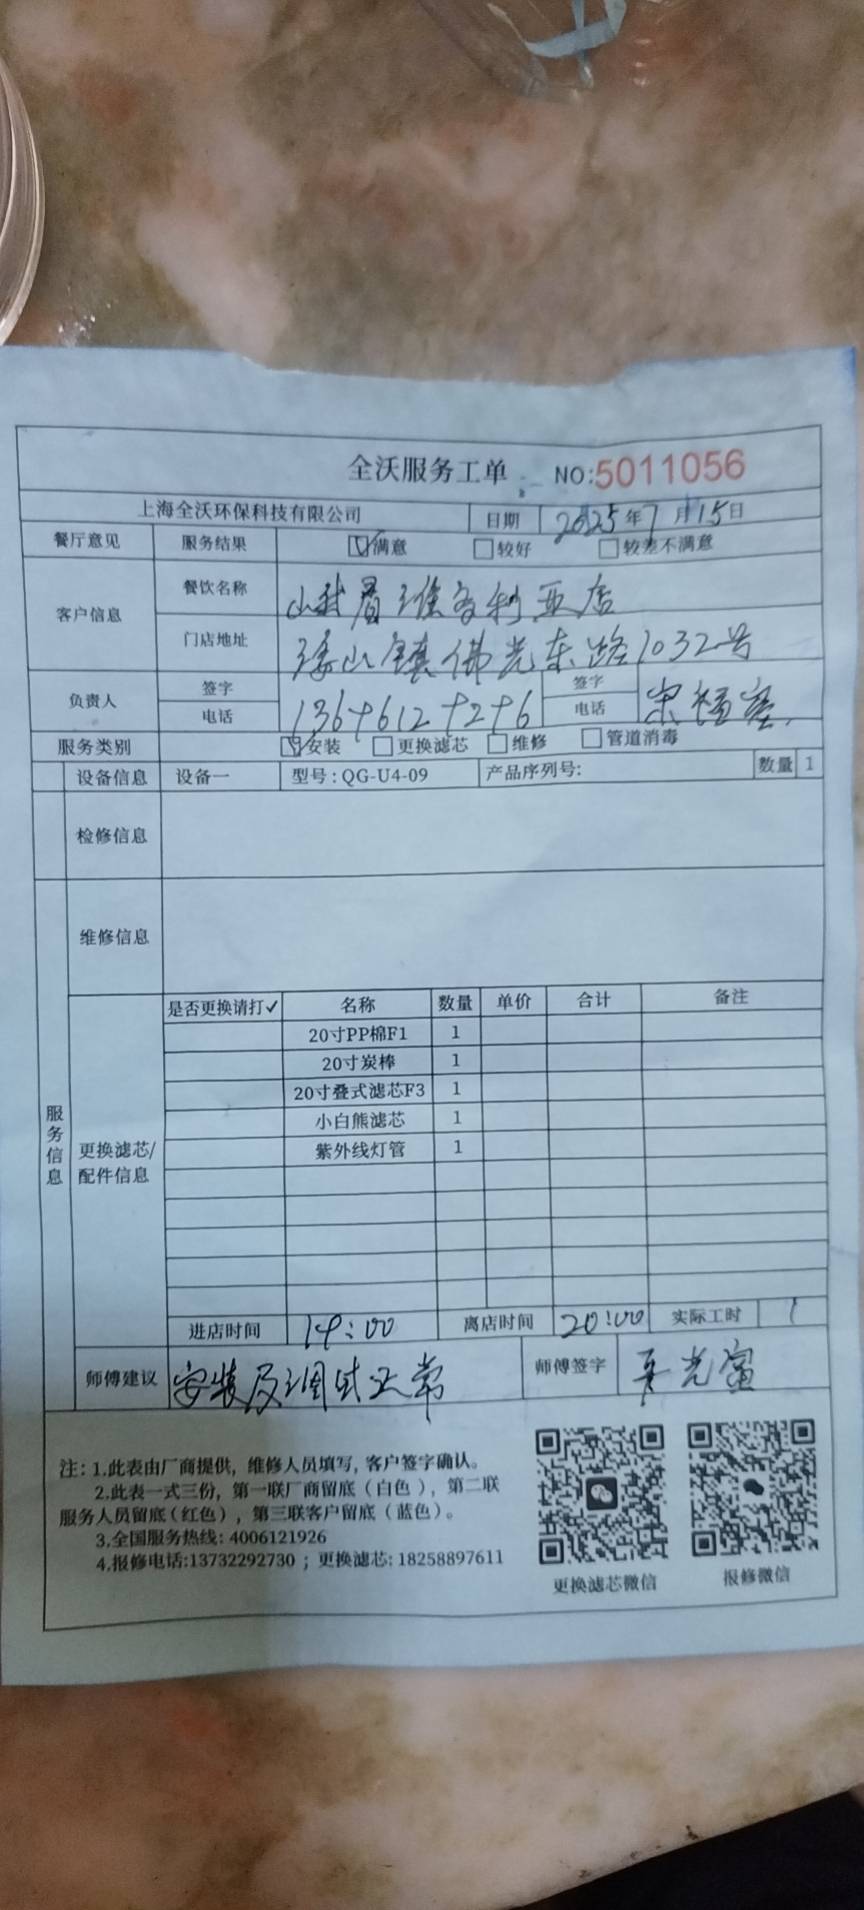 全沃服务工单 NO:5011056
上海全沃环保科技有限公司 日期 2025年7月15日
餐厅意见 服务结果 满意 较好 较差不满意
客户信息 餐饮名称 维多利亚店
门店地址 镇佛光东路1032号
负责人 签字 签字
电话 电话
服务类别 安装 更换滤芯 维修 管道消毒
设备信息 设备一 型号:QG-U4-09 产品序列号: 数量 1
检修信息
维修信息
服务信息
更换滤芯/配件信息
是否更换请打✓ 名称 数量 单价 合计 备注
20寸PP棉F1 1
20寸炭棒 1
20寸叠式滤芯F3 1
小白熊滤芯 1
紫外线灯管 1
进店时间 19:00 离店时间 20:00 实际工时 1
师傅建议 安装及调试正常 师傅签字
注: 1.此表由厂商提供, 维修人员填写, 客户签字确认。
2.此表一式三份, 第一联厂商留底(白色), 第二联
服务人员留底(红色), 第三联客户留底(蓝色)。
3.全国服务热线: 4006121926
4.报修电话:13732292730 ; 更换滤芯: 18258897611
更换滤芯微信 报修微信